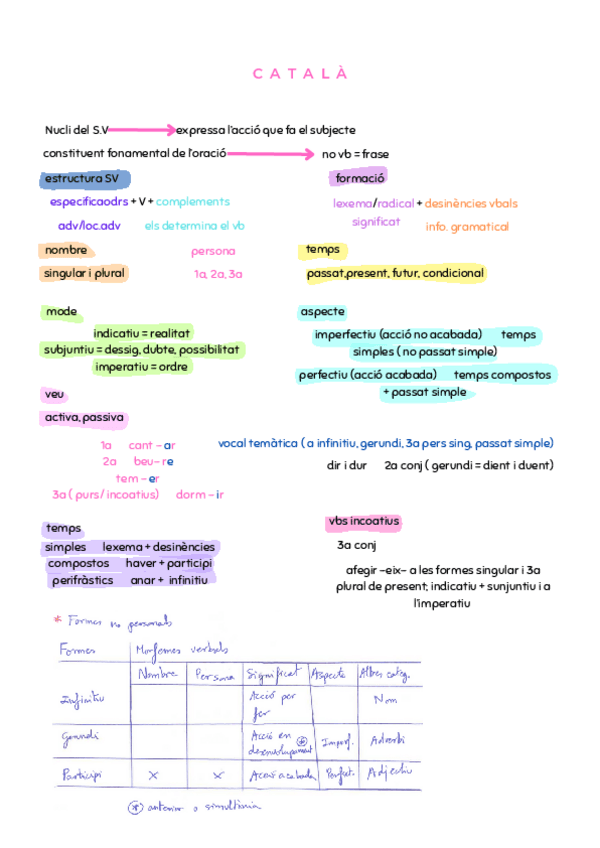 CATALÀ
Nucli del S.V expressa l'acció que fa el subjecte
constituent fonamental de l'oració no vb = frase
estructura SV
especificaodrs + V + complements
adv/loc.adv els determina el vb
formació
lexema/radical + desinències vbals
significat info. gramatical
nombre persona
singular i plural 1a, 2a, 3a
temps
passat,present, futur, condicional
mode
indicatiu = realitat
subjuntiu = dessig, dubte, possibilitat
imperatiu = ordre
aspecte
imperfectiu (acció no acabada) temps
simples ( no passat simple)
perfectiu (acció acabada) temps compostos
+ passat simple
veu
activa, passiva
1a cant - ar
2a beu- re
tem - er
3a ( purs/ incoatius) dorm - ir
vocal temàtica ( a infinitiu, gerundi, 3a pers sing, passat simple)
dir i dur 2a conj ( gerundi = dient i duent)
temps
simples lexema + desinències
compostos haver + participi
perifràstics anar + infinitiu
vbs incoatius
3a conj
afegir -eix- a les formes singular i 3a
plural de present; indicatiu + sunjuntiu i a
l'imperatiu
* Formes no personals
Formes Morfemes verbals
Nombre Persona Significat Aspecte Altres categ.
Infinitiu Acció per fer Nom
Gerundi Acció en desenvolupament * Imperf. Adverbi
Participi X X Acció acabada Perfect. Adjectiu
* anterior o simultània